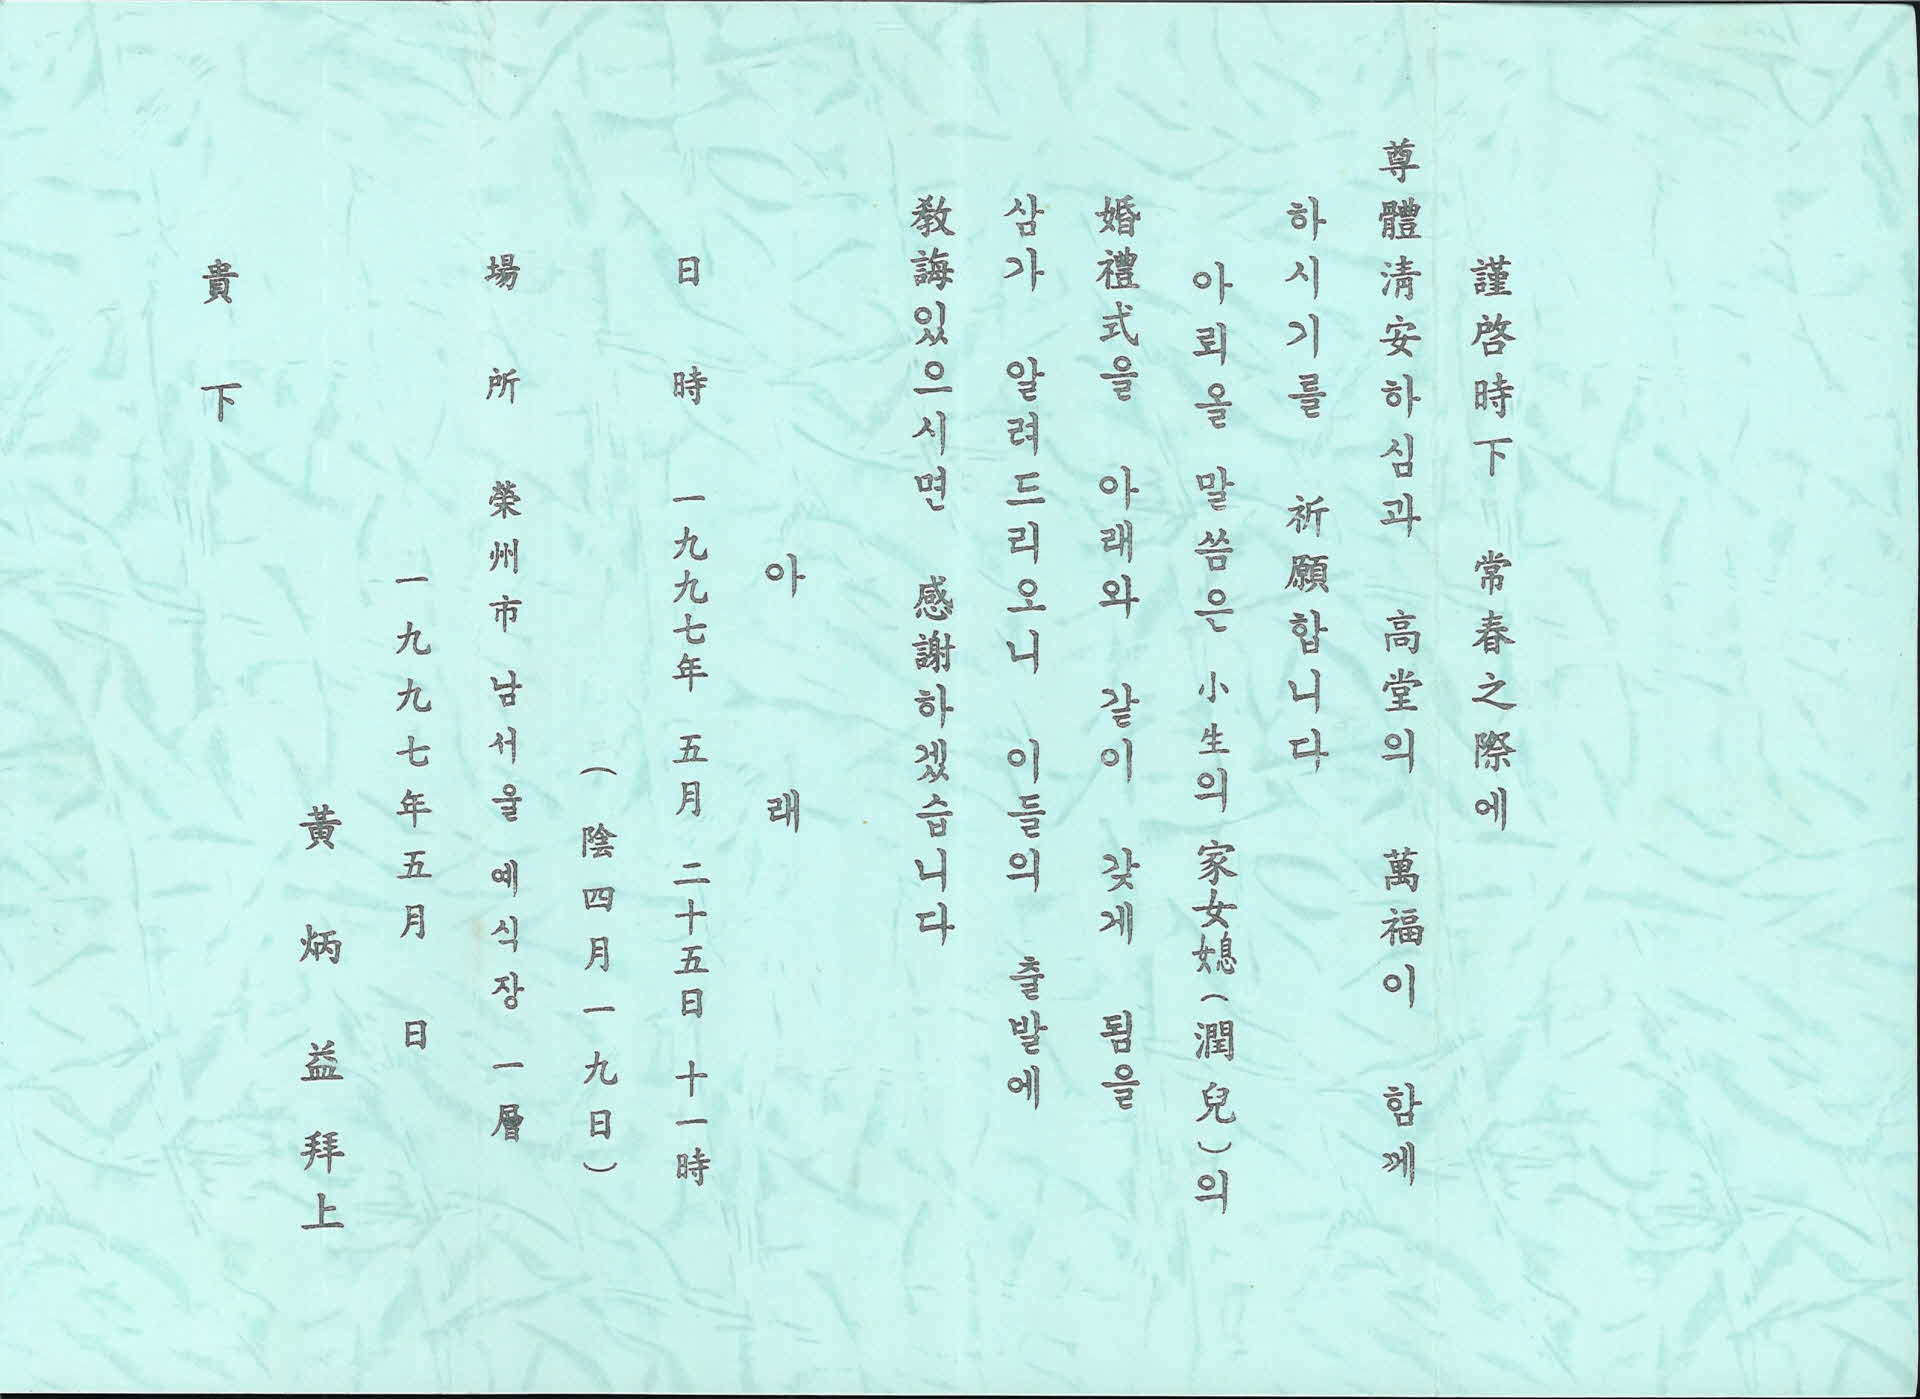 謹啓時下 常春之際에
尊體淸安하심과 高堂의 萬福이 함께
하시기를 祈願합니다
아뢰올 말씀은 小生의 家女媳(潤兒)의
婚禮式을 아래와 같이 갖게 됨을
삼가 알려드리오니 이들의 출발에
敎誨있으시면 感謝하겠습니다
아 래
日 時 一九九七年 五月 二十五日 十一時
(陰四月一九日)
場 所 榮州市 남서울 예식장 一層
一九九七年五月 日
黃炳益拜上
貴下